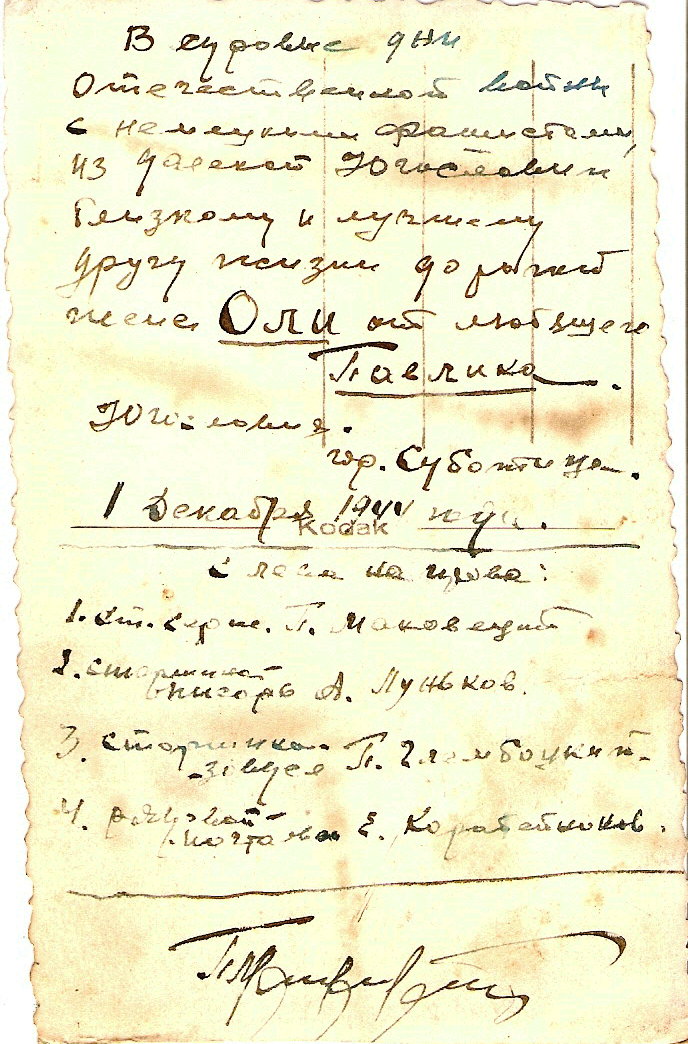 В суровые дни
Отечественной войны
с немецкими фашистами,
из далекой Югославии
близкому и лучшему
другу жизни дорогой
жене Оли от любящего
Павлика.
Югославия.
гор. Суботица.
1 Декабря 1944 года.
Kodak
Слева на право:
1. ст. серж. П. Маковецкий
2. старший
писарь А. Луньков.
3. старшина
П. Гламбоцкий
4. рядовой
почтальон Е. Коробейников.